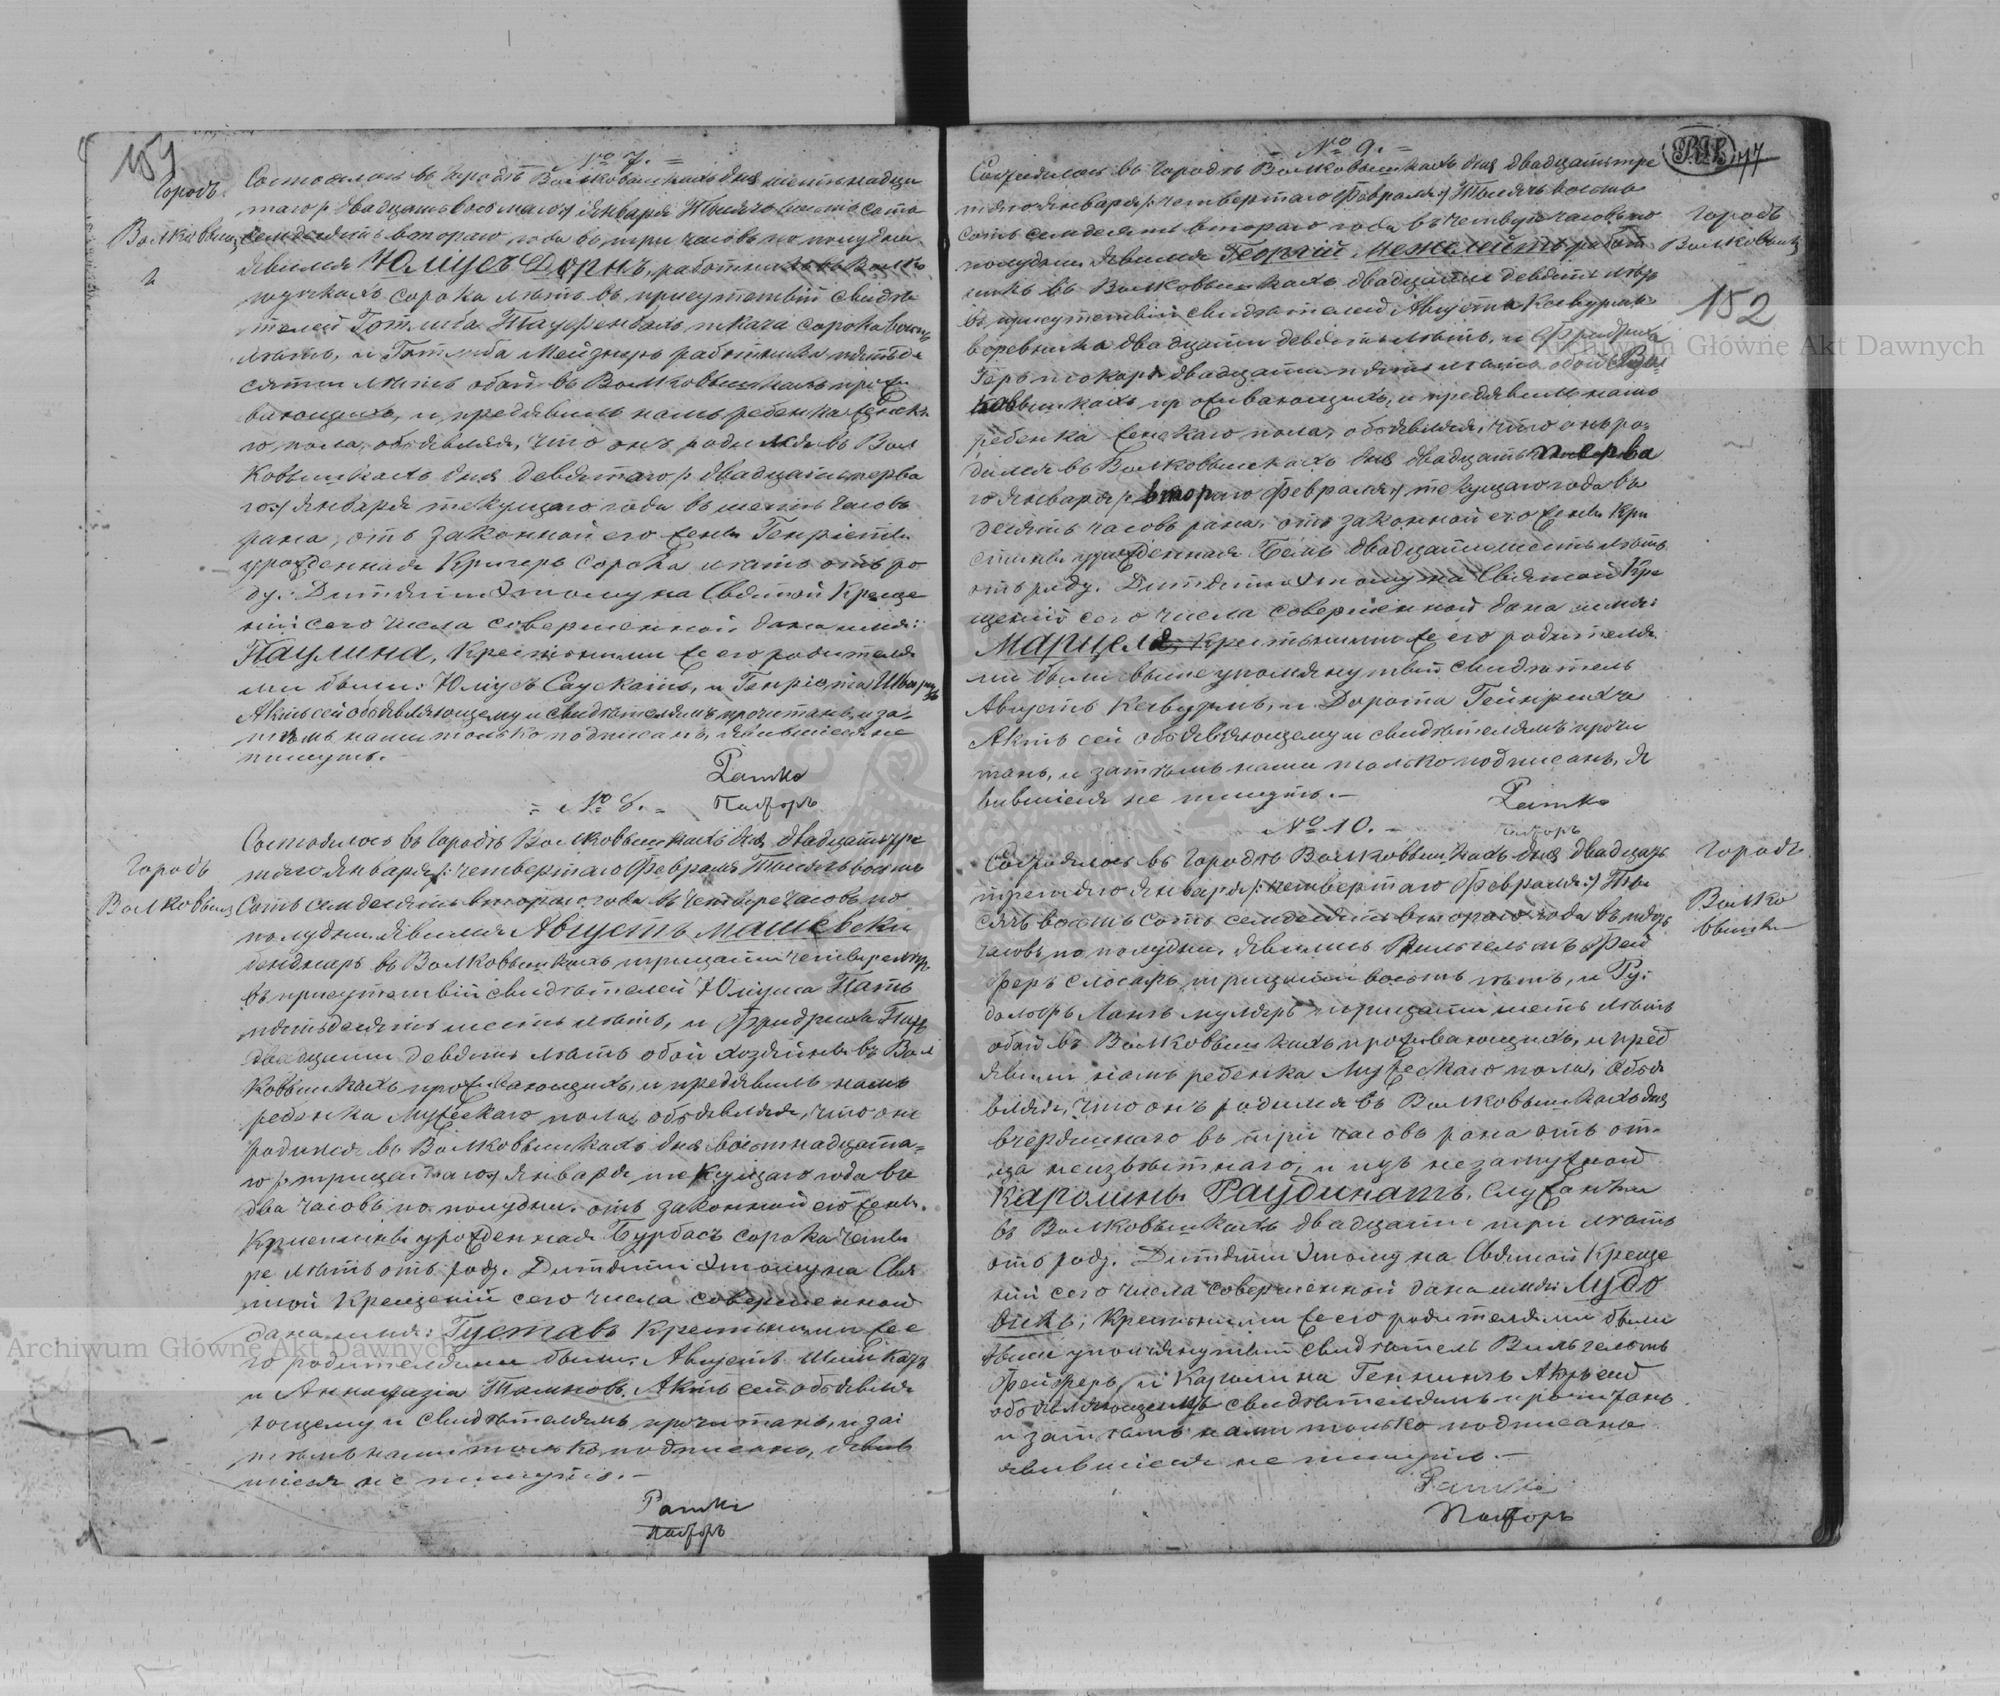 151
№ 7. =
Городъ
Волковыш
Состоялось въ городѣ Волковышкахъ дня шестьнадца
таго /: двадцать восьмаго :/ января тысяча восемьсотъ
семдесятъ втораго года въ три часовъ по полудни.
Явился Юлiусъ Дорнъ, работникъ въ Волко
вышкахъ сорока лѣтъ въ присутствiй свидѣ
телей Готлиба Тауференбахъ ткача сорока восемь
лѣтъ, и Готлиба Мейзнеръ работника пятьде
сяти лѣтъ обой въ Волковышкахъ прожи
вающихъ, и предъявилъ намъ ребенка женска
го пола, объявляя, что онъ родился въ Вол
ковышкахъ дня девятаго /: двадцать перва
го :/ января текущаго года въ шесть часовъ
рана, отъ законной его жены Генрiеты
урожденная Кригеръ сорока лѣтъ отъ ро
ду. Дитяти этому на Святой Креще
нiй сего числа совершенной дана имя:
Паулина, Крестными же его родителя
ми были: Юлiусъ Саускатъ, и Генрiета Шварцъ
Актъ сей объявляющему и свидѣтелямъ прочитанъ, и за-
тѣмъ нами только подписанъ, явившiеся не
пишутъ.
Ратке
Пасторъ
= № 8. =
Городъ
Волковыш
Состоялось въ городѣ Волковышкахъ дня двадцать тре
тяго января /: четвертаго февраля тысяча восемь
сотъ семдесятъ втораго года въ четыре часовъ по
полудни. Явился Августъ Машевски
въ Волковышкахъ тридцати четыре лѣтъ
въ присутствiй свидѣтелей Юлiуса Патъ
пятьдесятъ шесть лѣтъ, и Фридриха
двадцати девять лѣтъ обой хозяйны въ Вол
ковышкахъ проживающихъ, и предъявилъ намъ
ребенка мужескаго пола, объявляя, что онъ
родился въ Волковышкахъ дня восемнадцата-
го /: тридцатаго :/ января текущаго года въ
два часовъ по полудни. отъ законной его жены.
Кристины урожденная Бурбасъ сорока четы
ре лѣтъ отъ роду. Дитяти этому на Свя
той Крещенiй сего числа совершенной
дана имя: Густавъ Крестными же е
го родителями были: Августъ
и Аннафазiа Томновъ. Актъ сей объявля
ющему и свидѣтелямъ прочитанъ, и за:
тѣмъ нами только подписано, явив
шiеся не пишутъ. -
Ратке
Пасторъ
= № 9. =
77
Городъ
Волковыш
152
Состоялось въ городѣ Волковышкахъ дня двадцать тре
тяго января /: четвертаго февраля :/ тысяча восемь
сотъ семдесятъ втораго года въ четыре часовъ по
полудни. Явился Георгiй Межелайтъ работ
никъ въ Волковышкахъ двадцати девять лѣтъ
въ присутствiй свидѣтелей Августа Кавурмъ
веревника двадцати девять лѣтъ, и Фридриха
Геръ токаря двадцати пять лѣтъ обой въ Вол
ковышкахъ проживающихъ, и предъявилъ намъ
ребенка женскаго пола, объявляя, что онъ ро-
дился въ Волковышкахъ дня двадцать перва
го января /: втораго февраля :/ текущаго года въ
десять часовъ рана, отъ законной его жены Кри
стины урожденная Бемъ двадцати шесть лѣтъ
отъ роду. Дитяти этому на Святой Кре
щенiй сего числа совершенной дана имя:
Марцеля, Крестными же его родителя
ми были вышеупомянутый свидѣтель
Августъ Кавурмъ, и Дорота Гейнрихъ
Актъ сей объявляющему и свидѣтелямъ прочи
танъ, и затѣмъ нами только подписанъ, я
вившiеся не пишутъ. -
Ратке
Пасторъ
№ 10. -
Городъ
Волко
вышки
Состоялось въ городѣ Волковышкахъ дня двадцать
третяго января /: четвертаго февраля :/ ты
сяча восемьсотъ семдесятъ втораго года въ пять
часовъ по полудни. Явились Вильгельмъ Фей
феръ слосаръ тридцати восемь лѣтъ, и Ру:
дольфъ Лангъ муляръ тридцати шесть лѣтъ
обой въ Волковышкахъ проживающихъ, и пред
явили намъ ребенка мужескаго пола, объя
вляя, что онъ родился въ Волковышкахъ дня
вчерашнаго въ три часовъ рана отъ от-
ца неизвѣстнаго, и изъ незамужной
Каролины Раудинатъ, служанки
въ Волковышкахъ двадцати три лѣтъ
отъ роду. Дитяти этому на Святой Креще
нiй сего числа совершенной дана имя: Лудо
викъ; Крестными же его родителями были
выше упомянутый свидѣтель Вильгельмъ
Фейферъ, и Каролина Геннингъ Актъ сей
объявляющимъ свидѣтелямъ прочитанъ
и затѣмъ нами только подписано
явившiеся не пишутъ. -
Ратке
Пасторъ
Archiwum Główne Akt Dawnych
Archiwum Główne Akt Dawnych